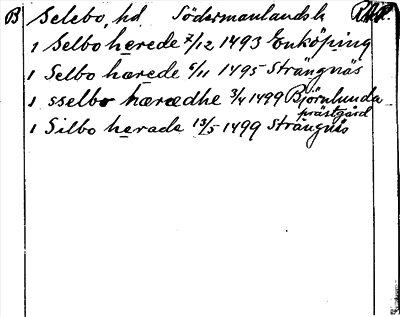 B Selebo, hd Södermanlands l.
1 Selbo hærede 7/12 1493 Enköping
1 Selbo harede 6/11 1495 Strängnäs
1 sselbo hæredhe 3/4 1499 Björnlunda prästgård
1 Silbo herade 13/5 1499 Strängnäs